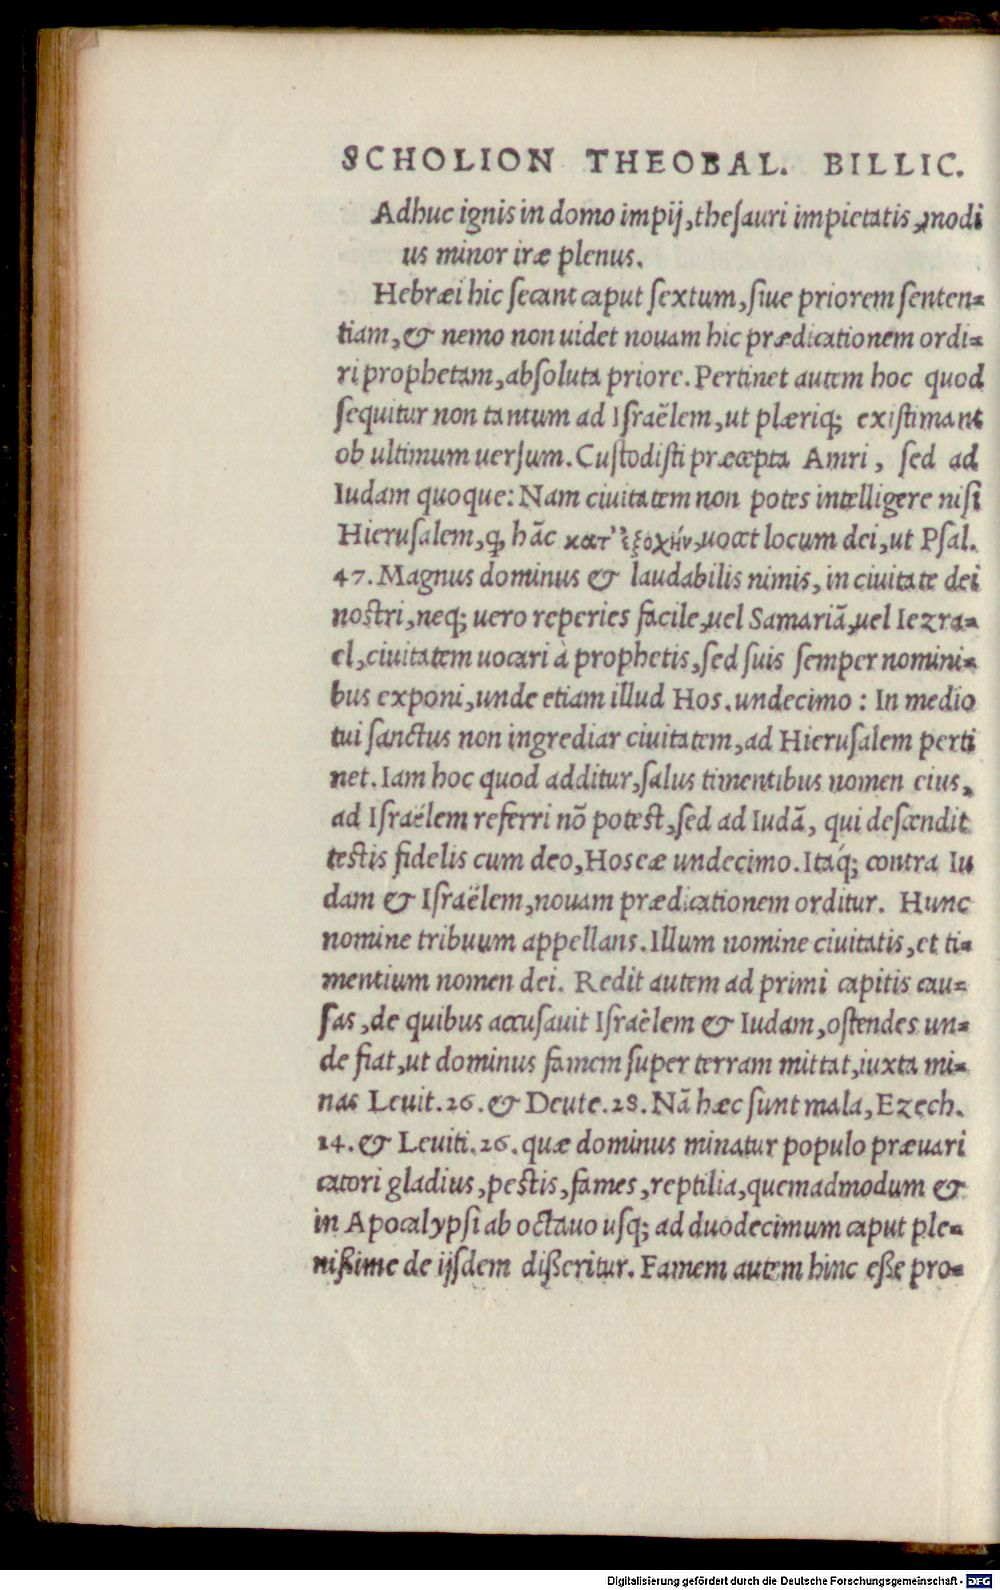 SCHOLION THEOBAL. BILLIC.
Adhuc ignis in domo impij, theſauri impietatis, modi
us minor iræ plenus.
Hebræi hic ſecant caput ſextum, ſiue priorem ſenten-
tiam, & nemo non uidet nouam hic prædicationem ordi-
ri prophetam, abſoluta priore. Pertinet autem hoc quod
ſequitur non tantum ad Iſraëlem, ut plæriq; exiſtimant
ob ultimum uerſum. Cuſtodiſti præcepta Amri, ſed ad
Iudam quoque: Nam ciuitatem non potes intelligere niſi
Hieruſalem, ꝙ hãc κατ' ἐξοχήν, uocat locum dei, ut Pſal.
47. Magnus dominus & laudabilis nimis, in ciuitate dei
noſtri, neq; uero reperies facile, uel Samariã, uel Iezra-
el, ciuitatem uocari à prophetis, ſed ſuis ſemper nomini-
bus exponi, unde etiam illud Hos. undecimo : In medio
tui ſanctus non ingrediar ciuitatem, ad Hieruſalem perti
net. Iam hoc quod additur, ſalus timentibus nomen eius,
ad Iſraélem referri nõ poteſt, ſed ad Iudã, qui deſcendit
teſtis fidelis cum deo, Hoseæ undecimo. Itáq; contra Iu
dam & Iſraëlem, nouam prædicationem orditur. Hunc
nomine tribuum appellans. Illum nomine ciuitatis, et ti-
mentium nomen dei. Redit autem ad primi capitis cau-
ſas, de quibus accuſauit Iſraëlem & Iudam, oſtendes un-
de fiat, ut dominus famem ſuper terram mittat, iuxta mi-
nas Leuit. 26. & Deute. 28. Nã hæc ſunt mala, Ezech.
14. & Leuiti. 26. quæ dominus minatur populo præuari
catori gladius, peſtis, fames, reptilia, quemadmodum &
in Apocalypſi ab octauo uſq; ad duodecimum caput ple-
nißime de ijſdem dißeritur. Famem autem hinc eße pro-
Digitalisierung gefördert durch die Deutsche Forschungsgemeinschaft - DFG